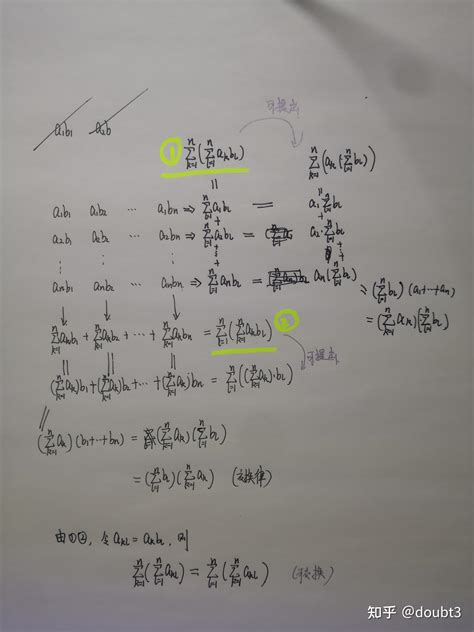 a₁b₁ a₂b
可提出
① ∑_{k=1}^{n}(∑_{l=1}^{n}aₖbₗ) ∑_{k=1}^{n}(aₖ(∑_{l=1}^{n}bₗ))
a₁b₁ a₁b₂ ⋯ a₁bₙ ⇒ ∑_{l=1}^{n}a₁bₗ = a₁∑_{l=1}^{n}bₗ
a₂b₁ a₂b₂ ⋯ a₂bₙ ⇒ ∑_{l=1}^{n}a₂bₗ = a₂·∑_{l=1}^{n}bₗ
⋮ ⋮ ⋮ ⋮
aₙb₁ aₙb₂ ⋯ aₙbₙ ⇒ ∑_{l=1}^{n}aₙbₗ = aₙ(∑_{l=1}^{n}bₗ) = (∑_{l=1}^{n}bₗ)(a₁+⋯+aₙ)
= (∑_{k=1}^{n}aₖ)(∑_{l=1}^{n}bₗ)
∑_{k=1}^{n}aₖb₁ + ∑_{k=1}^{n}aₖb₂ + ⋯ + ∑_{k=1}^{n}aₖbₙ = ∑_{l=1}^{n}(∑_{k=1}^{n}aₖbₗ) ②
可提出
(∑_{k=1}^{n}aₖ)b₁+(∑_{k=1}^{n}aₖ)b₂+⋯+(∑_{k=1}^{n}aₖ)bₙ = ∑_{l=1}^{n}((∑_{k=1}^{n}aₖ)·bₗ)
(∑_{k=1}^{n}aₖ)(b₁+⋯+bₙ) = (∑_{k=1}^{n}aₖ)(∑_{l=1}^{n}bₗ)
= (∑_{l=1}^{n}bₗ)(∑_{k=1}^{n}aₖ) (交换律)
由①②, 令aₖₗ = aₖbₗ, 则
∑_{k=1}^{n}(∑_{l=1}^{n}aₖₗ) = ∑_{l=1}^{n}(∑_{k=1}^{n}aₖₗ) (可交换)
知乎 @doubt3